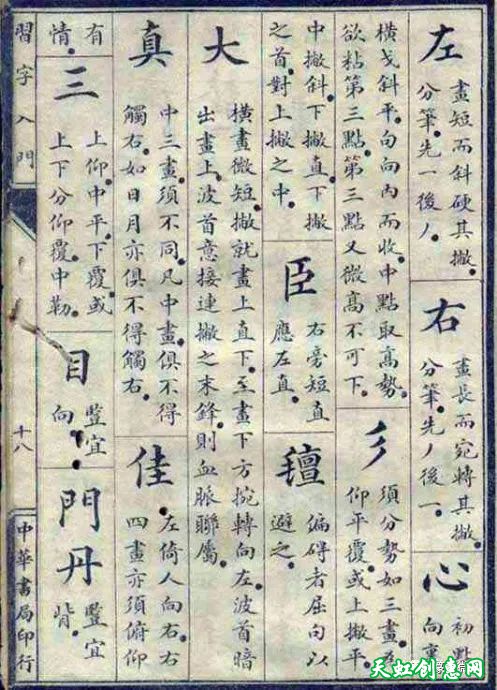 左
畫短而斜硬其撇。
分筆。先一後丿。
右
畫長而宛轉其撇。
分筆。先丿後一。
心
初點
向裏
橫戈斜平。句向內而收。中點取高勢。
欲粘第三點。第三點又微高不可下。
彡
須分勢如三畫為
仰平覆。或上撇平。
中撇斜。下撇直。下撇
之首。對上撇之中。
臣
右旁短直。
應左直。
偏碍者屈句以
避之。
大
橫畫微短。撇就畫上直下。至畫下方捥轉向左。波首暗
出畫上。波首意接連撇之末鋒。則血脈聯屬。
真
中三畫須不同。凡中畫。俱不得
觸右。如日月亦俱不得觸右。
佳
左倚人向右。右
四畫亦須俯仰
有
情。
三
上仰。中平。下覆。或
上下分仰覆。中勒。
目
豎宜
向。
門丹
豎宜
背。
習字入門
十八
中華書局印行
天虹创意网